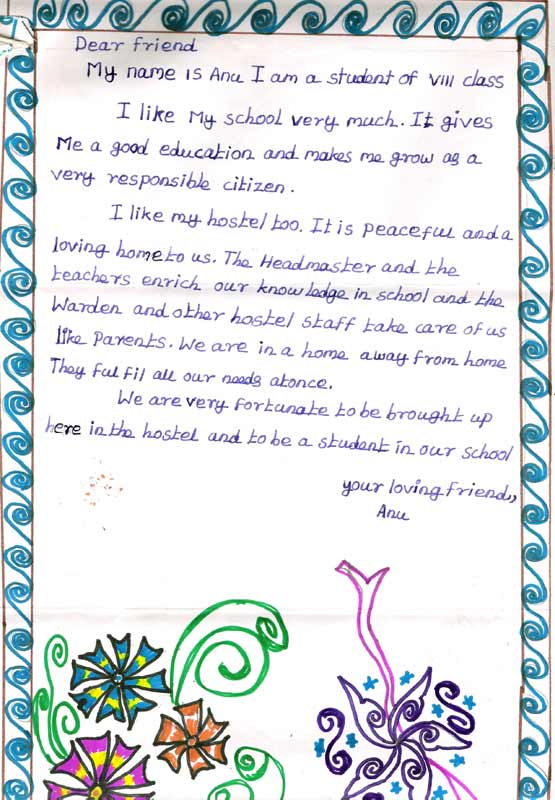 Dear friend
My name is Anu I am a student of VIII class
I like My school very much. It gives
Me a good education and makes me grow as a
very responsible citizen.
I like my hostel too. It is peaceful and a
loving home to us. The Headmaster and the
teachers enrich our knowledge in school and the
Warden and other hostel staff take care of us
like Parents. We are in a home away from home
They ful fil all our needs atonce.
We are very fortunate to be brought up
here in the hostel and to be a student in our school
your loving friend,,
Anu